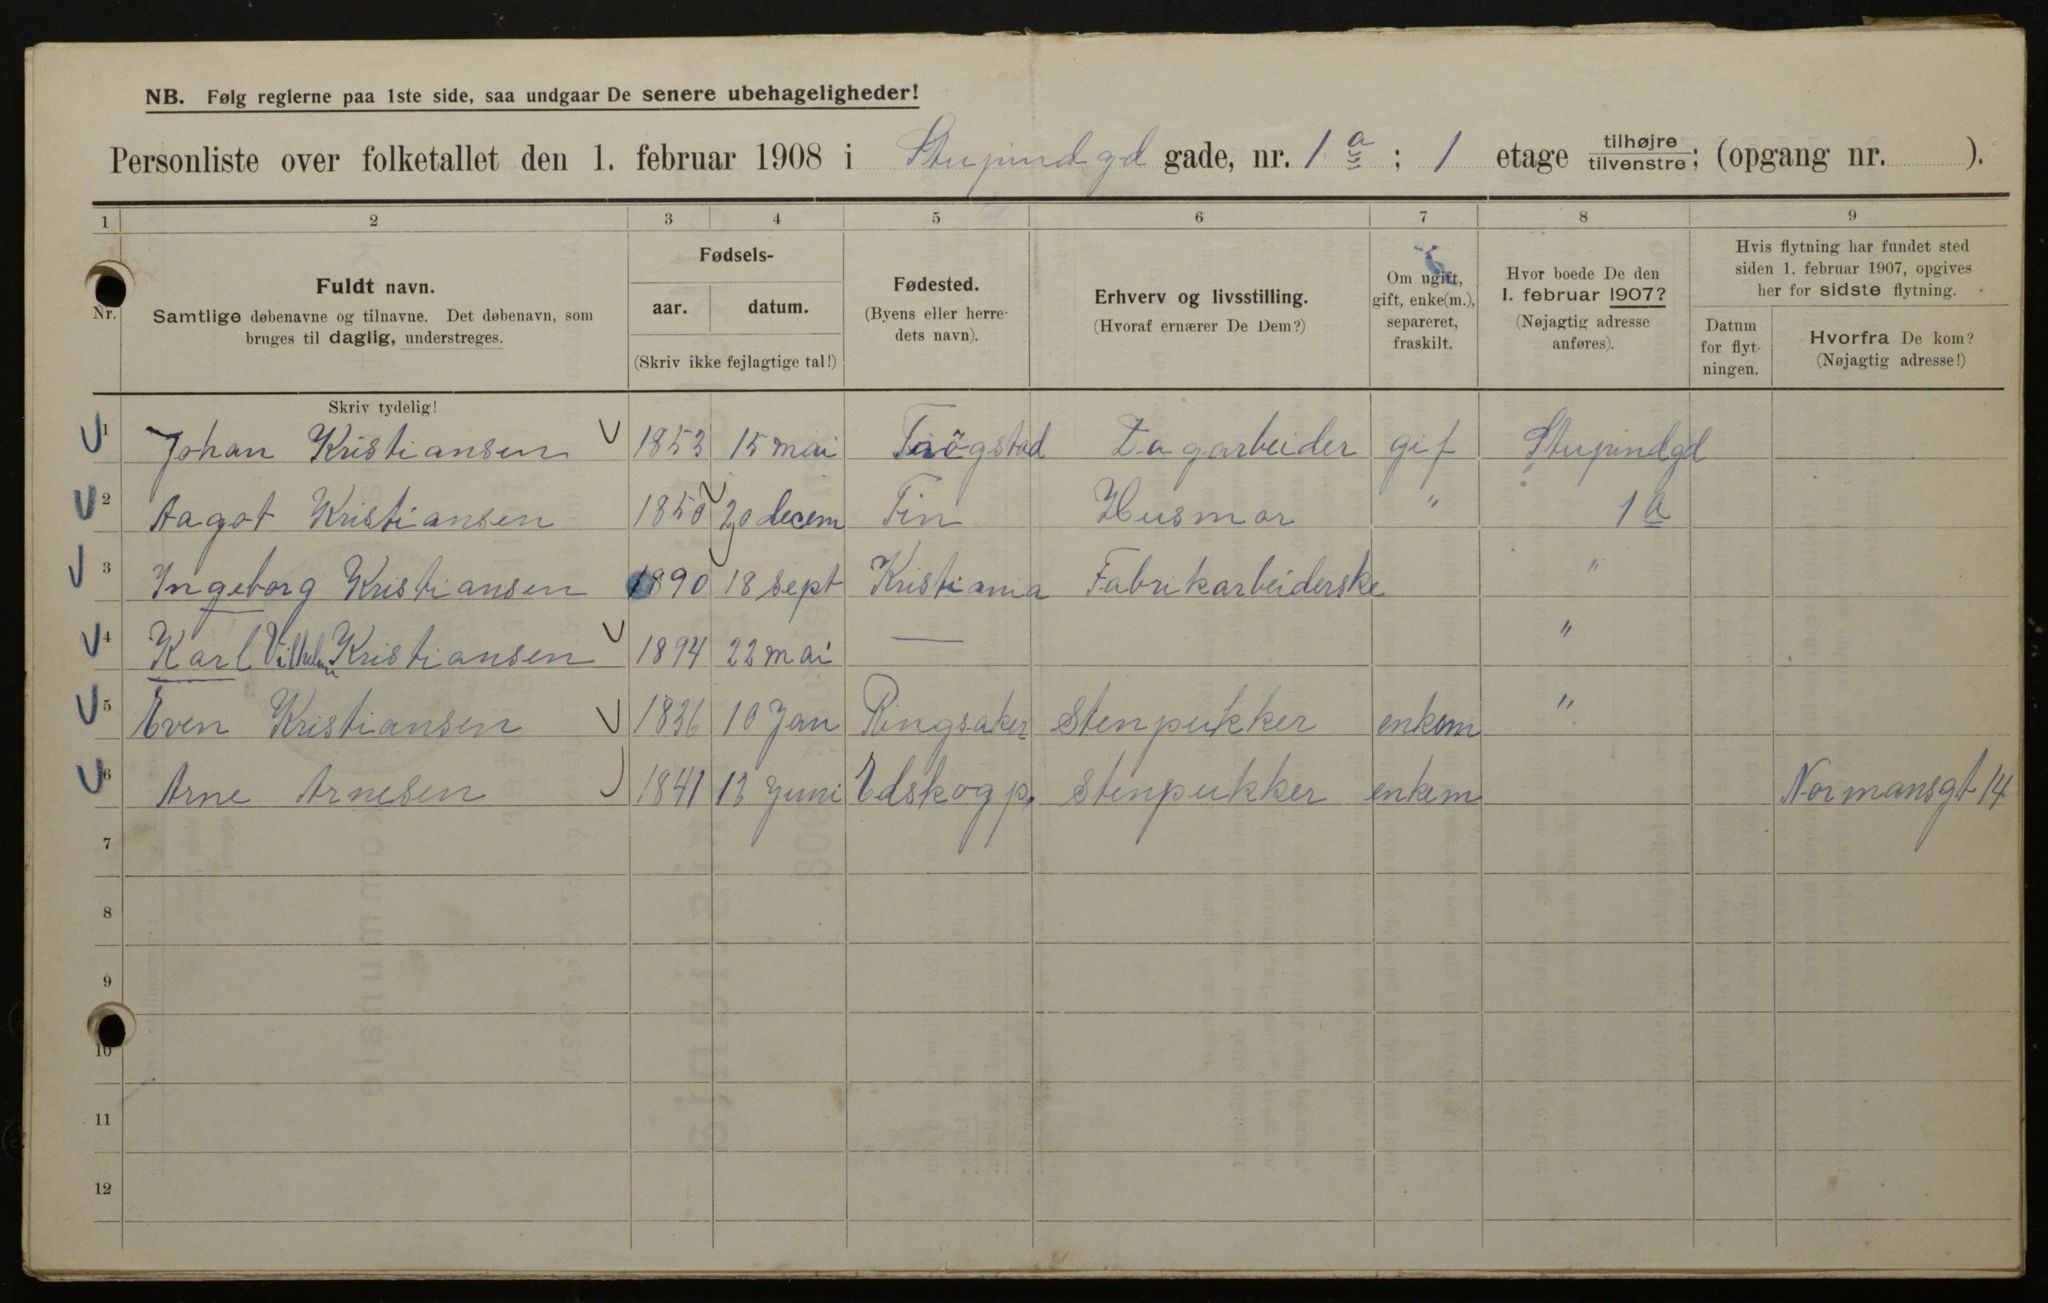 NB. Følg reglerne paa 1ste side, saa undgaar De senere ubehageligheder!
Personliste over folketallet den 1. februar 1908 i Stupindgd gade, nr. 1 a ; 1 etage tilhøjre tilvenstre; (opgang nr. ).
1 2 3 4 5 6 7 8 9
Nr.
Fuldt navn.
Samtlige døbenavne og tilnavne. Det døbenavn, som
bruges til daglig, understreges.
Skriv tydelig!
Fødsels-
aar. datum.
(Skriv ikke fejlagtige tal!)
Fødested.
(Byens eller herre-
dets navn).
Erhverv og livsstilling.
(Hvoraf ernærer De Dem?)
Om ugift,
gift, enke(m.),
separeret,
fraskilt.
Hvor boede De den
1. februar 1907?
(Nøjagtig adresse
anføres).
Hvis flytning har fundet sted
siden 1. februar 1907, opgives
her for sidste flytning.
Datum
for flyt-
ningen.
Hvorfra De kom?
(Nøjagtig adresse!)
1 Johan Kristiansen 1853 15 mai Trögstad Dagarbeider gif Stupindgd
2 Aagot Kristiansen 1850 20 decem Tin Husmor " 1 a
3 Ingeborg Kristiansen 1890 18 sept Kristiania Fabrikarbeiderske "
4 Karl Vilhelm Kristiansen 1894 22 mai — "
5 Even Kristiansen 1836 10 Jan Ringsaker Stenpukker enkom "
6 Arne Arnesen 1841 13 Juni Edskog p. Stenpukker enkem Normansgt 14
7
8
9
10
11
12